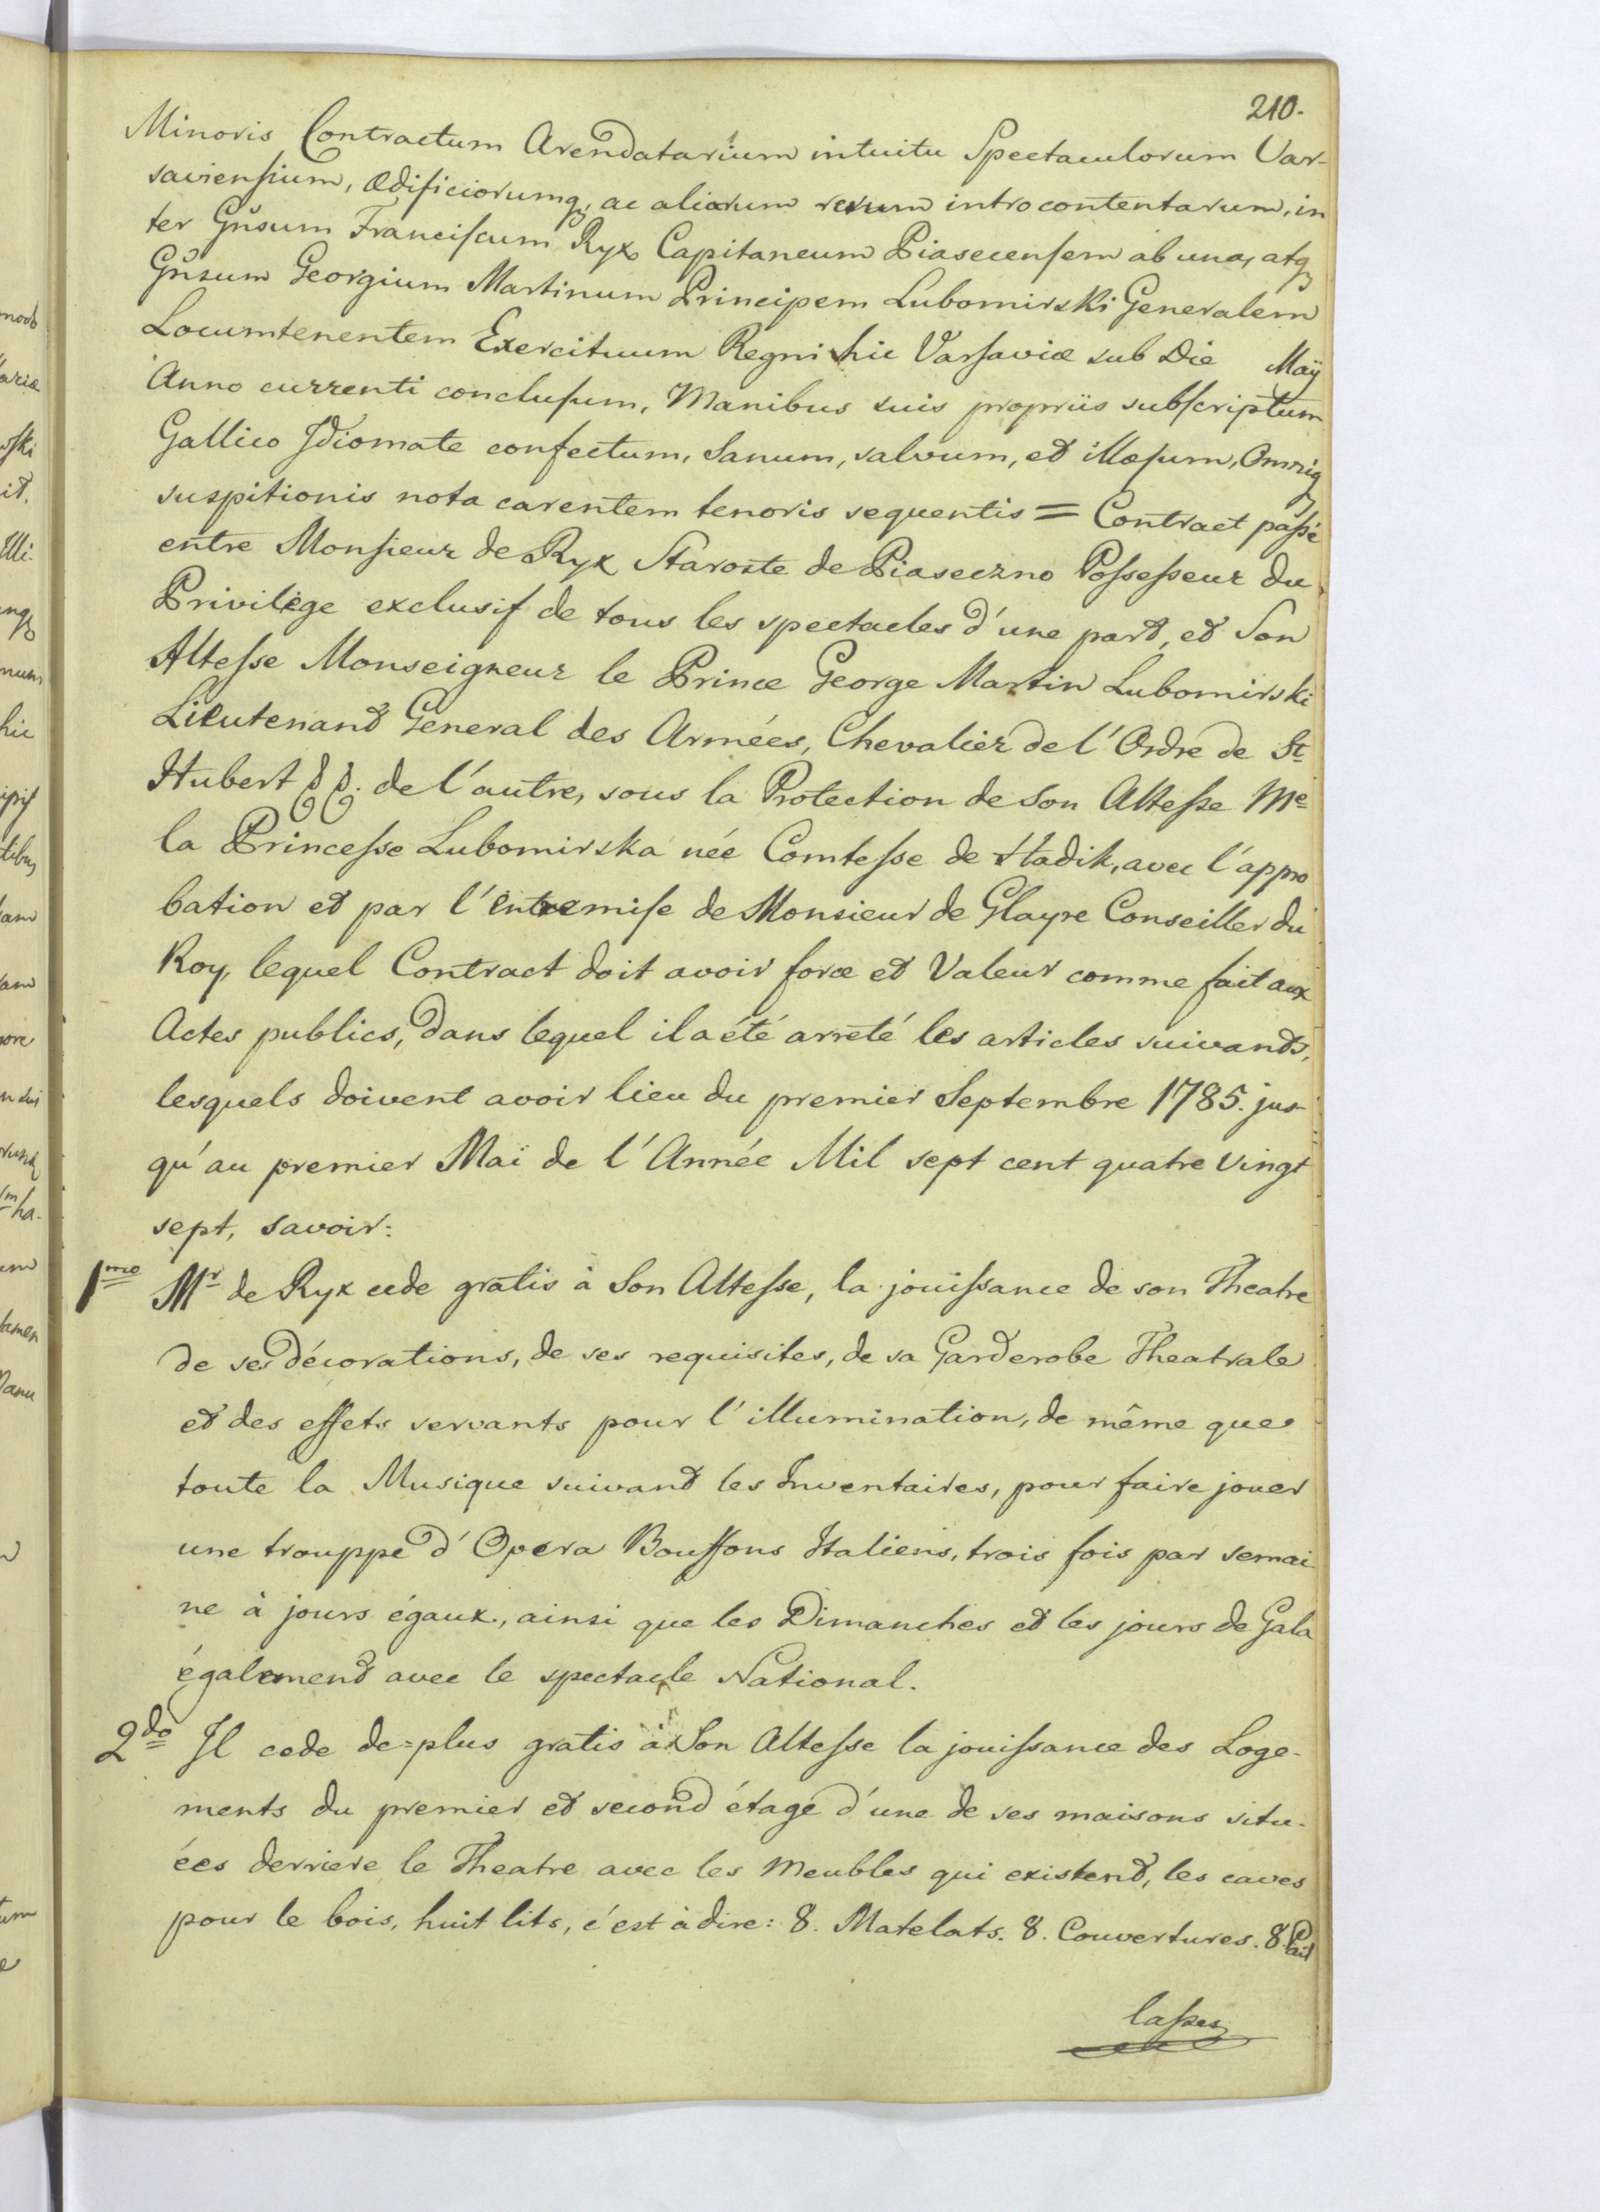 210.
Minoris Contractum Arendatarium intuitu Spectaculorum Var-
saviensium, Ædificiorumq, ac aliarum rerum introcontentarum, in
ter Gnsum Franciscum Ryx Capitaneum Piasecensem ab una, atq
Gnsum Georgium Martinum Principem Lubomirski Generalem
Locumtenentem Exercituum Regni hic Varsaviæ sub Die Maÿ
Anno currenti conclusum, Manibus suis propriis subscriptum
Gallico Idiomate confectum, Sanum, salvum, et illæsum, Omniq
suspitionis nota carentem tenoris sequentis = Contract passé
entre Monsieur de Ryx Staroste de Piaseczno Possesseur du
Privilège exclusif de tous les spectacles d'une part, et Son
Altesse Monseigneur le Prince George Martin Lubomirski
Lieutenant General des Armées, Chevalier de l'Ordre de St
Hubert de l'autre, sous la Protection de son Altesse Me
la Princesse Lubomirska née Comtesse de Hadik, avec l'appro
bation et par l'entremise de Monsieur de Glayre Conseiller du
Roy, lequel Contract doit avoir force et Valeur comme fait aux
Actes publics, dans lequel il a été arreté les articles suivants,
lesquels doivent avoir lieu du premier Septembre 1785. jus-
qu'au premier Maï de l'Année Mil sept cent quatre vingt
sept, savoir:
1mo Mr de Ryx cede gratis à Son Altesse, la jouissance de son Theatre
de ses décorations, de ses requisites, de sa Garderobe Theatrale
et des effets servants pour l'illumination, de même que
toute la Musique suivant les Inventaires, pour faire jouer
une trouppe d'Opera Bouffons Italiens, trois fois par semai
ne à jours égaux, ainsi que les Dimanches et les jours de Gala
également avec le spectacle National.
2do Il cede de=plus gratis à Son Altesse la jouissance des Loge-
ments du premier et second étage d'une de ses maisons situ-
ées derriere le Theatre avec les Meubles qui existent, les caves
pour le bois, huit lits, c'est à dire: 8. Matelats. 8. Couvertures. 8. Pail
lasses